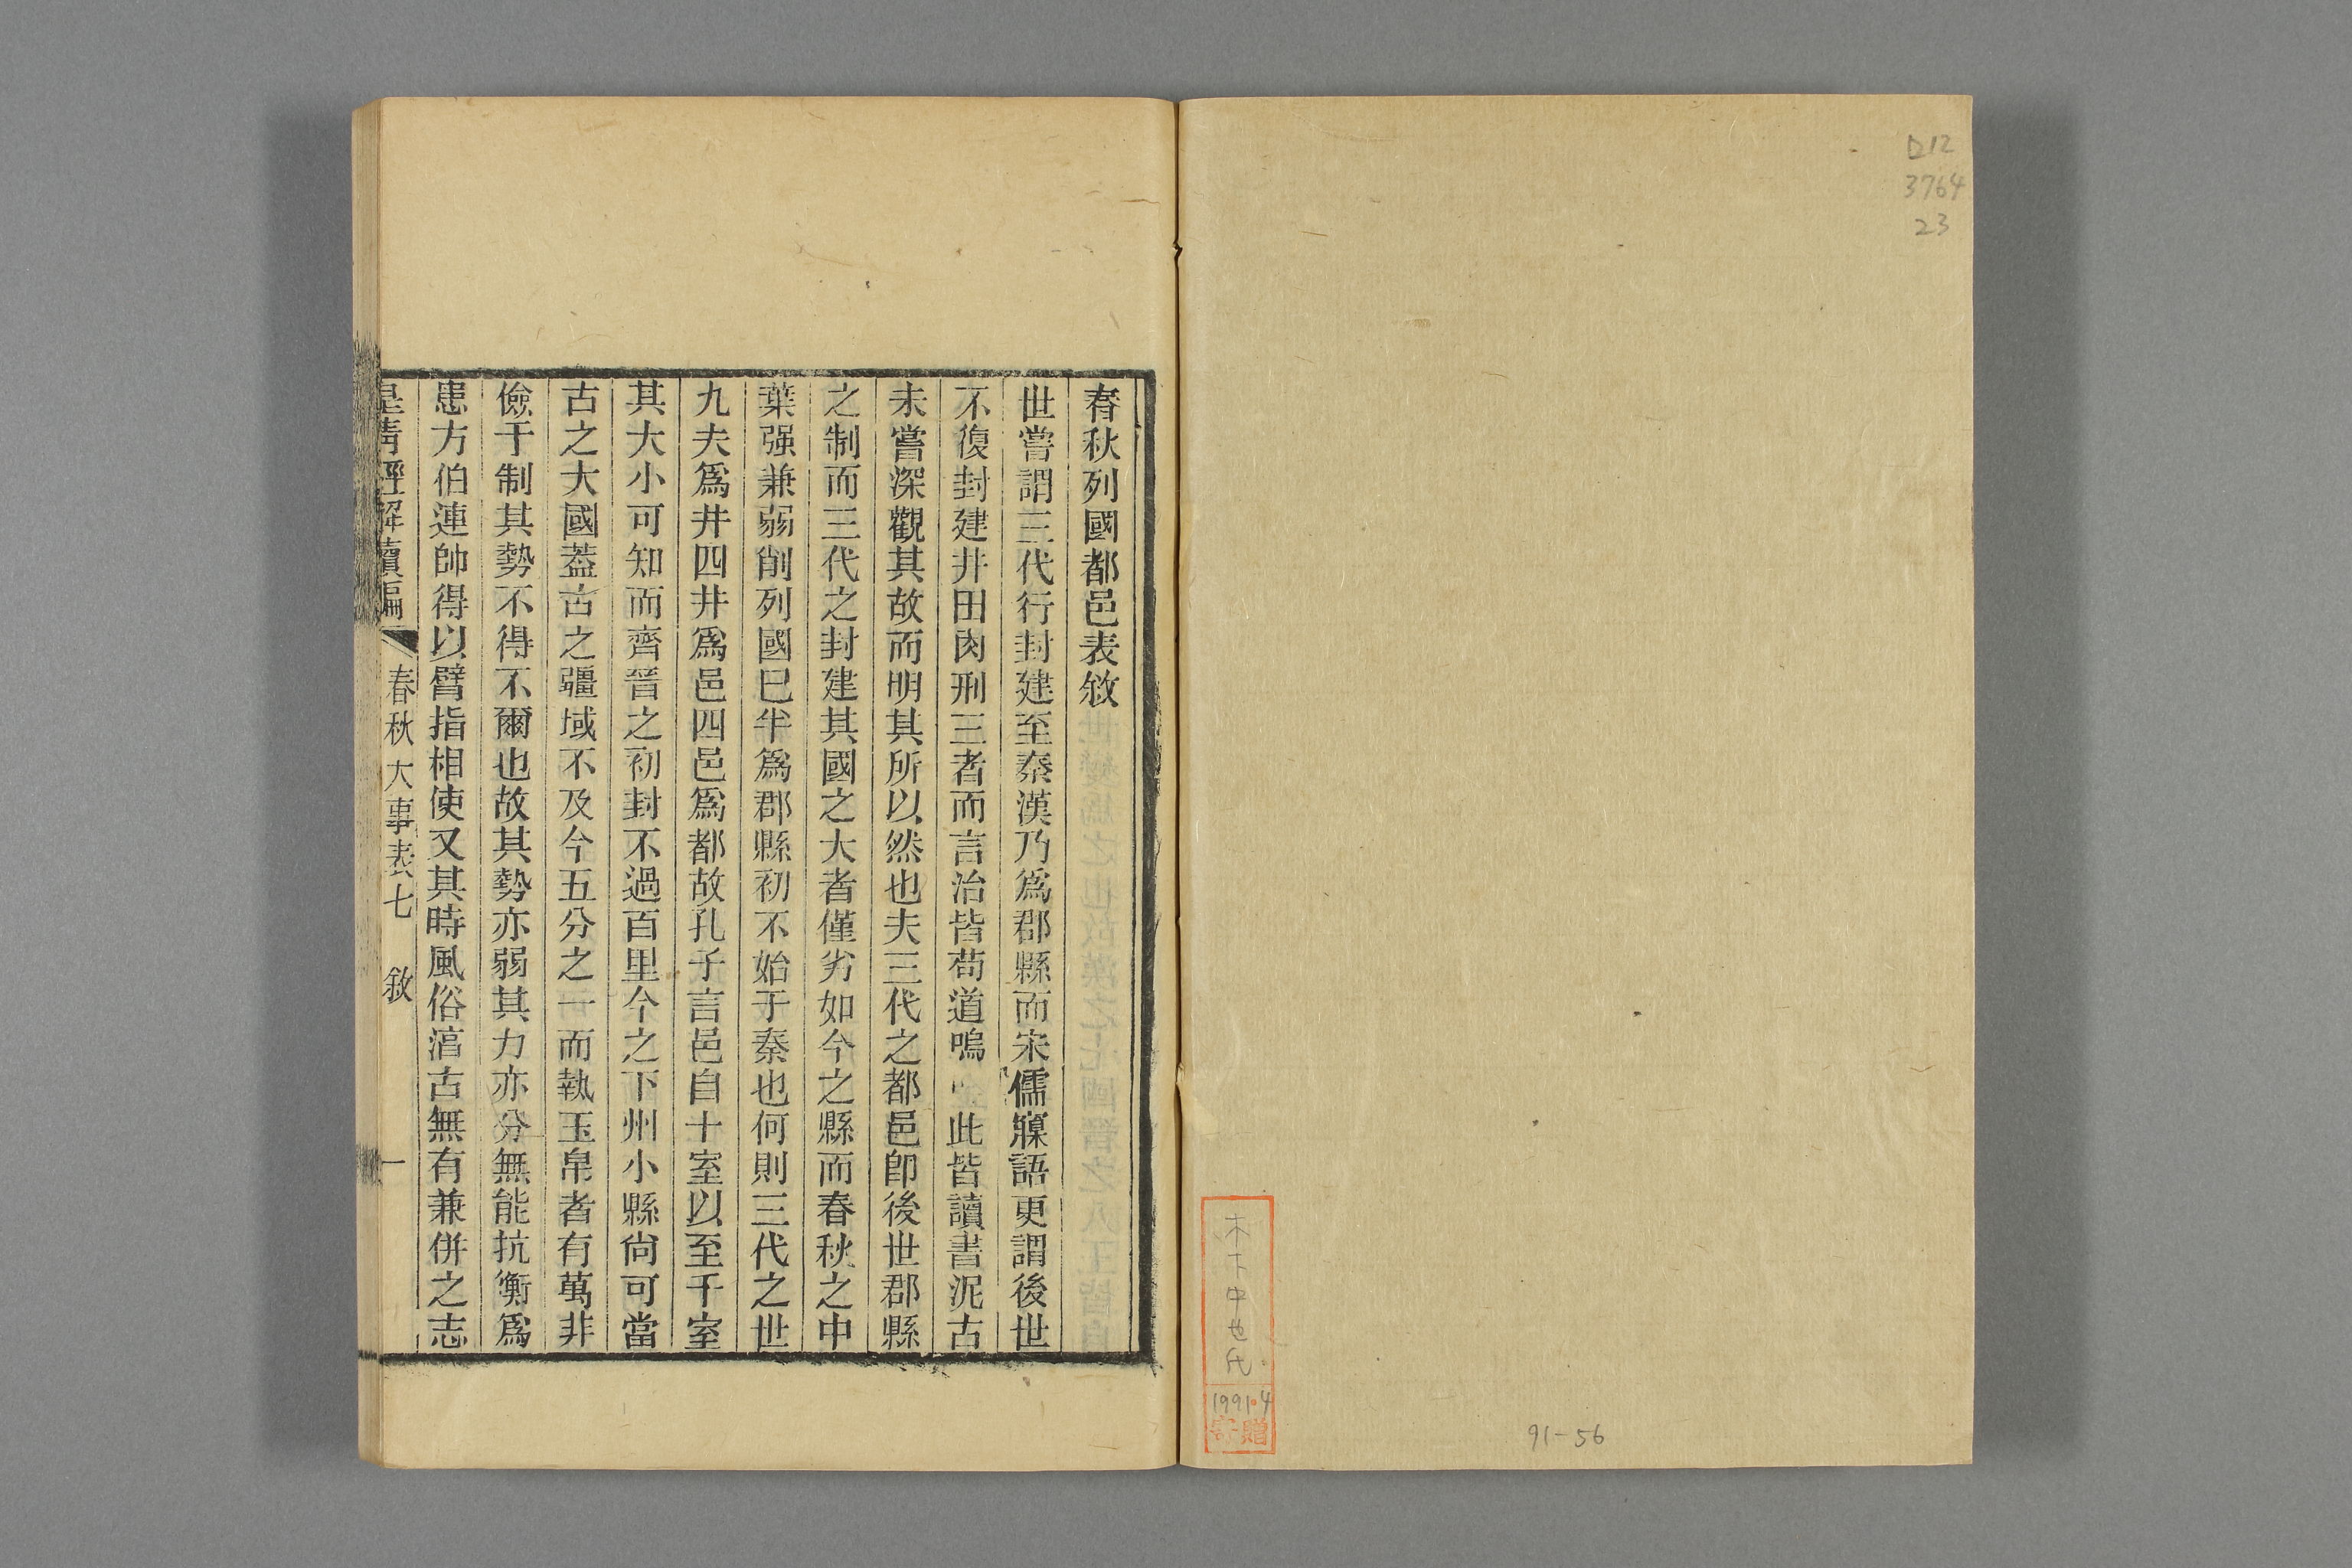 D12
3764
23
木下中也氏
1991.4
寄贈
91-56
春秋列國都邑表敘
世嘗謂三代行封建至秦漢乃爲郡縣而宋儒寱語更謂後世
不復封建井田肉刑三者而言治皆苟道嗚 此皆讀書泥古
未嘗深觀其故而明其所以然也夫三代之都邑卽後世郡縣
之制而三代之封建其國之大者僅劣如今之縣而春秋之中
葉强兼弱削列國已半爲郡縣初不始于秦也何則三代之世
九夫爲井四井爲邑四邑爲都故孔子言邑自十室以至千室
其大小可知而齊晉之初封不過百里今之下州小縣尙可當
古之大國葢古之疆域不及今五分之一而執玉帛者有萬非
儉于制其勢不得不爾也故其勢亦弱其力亦分無能抗衡爲
患方伯連帥得以臂指相使又其時風俗湻古無有兼併之志
皇淸經解續編 春秋大事表七 敘 一